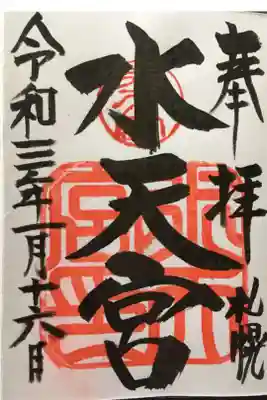 奉拝
札幌
水天宮
令和三年一月十六日